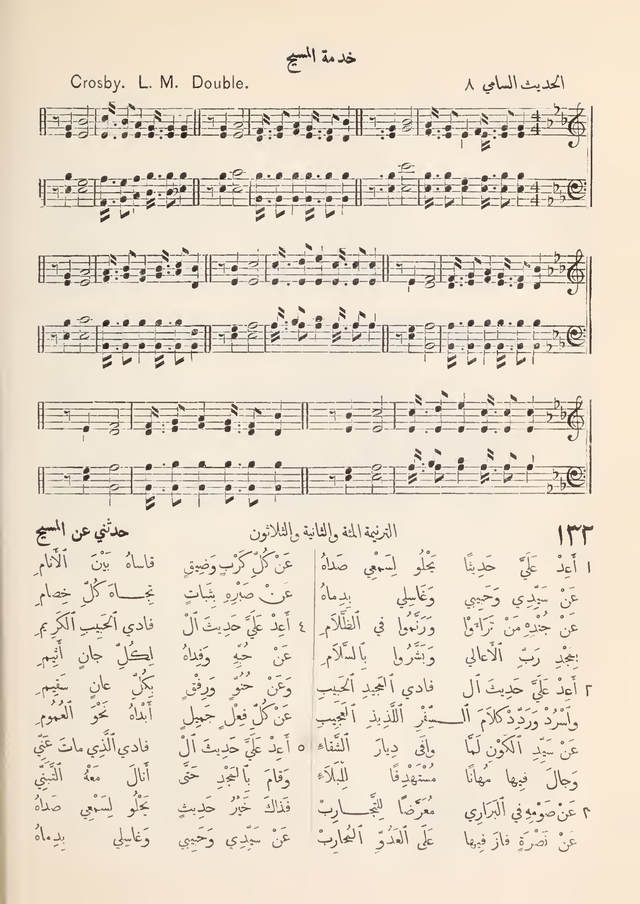 خدمة المسيح
Crosby. L. M. Double.
الحديث السامي ٨
١٣٢ الترنيمة المئة والثانية والثلاثون حدثني عن المسيح
١ أَعِدْ عَلَيَّ حَدِيثًا يَحْلُو لِسَمْعِي صَدَاهُ
عَنْ سَيِّدِي وَحَبِيبِي وَغَاسِلِي بِدِمَاهُ
عَنْ جُنْدِهِ مَنْ تَرَاءَوْا وَرَنَّمُوا فِي الظَّلَامِ
بِمَجْدِ رَبِّ الْأَعَالِي وَبَشَّرُوا بِالسَّلَامِ
٢ أَعِدْ عَلَيَّ حَدِيثَ ال فَادِي الْمَجِيدِ الْحَبِيبِ
وَاسْرُدْ وَرَدِّدْ كَلَامَ السِّفْرِ اللَّذِيذِ الْعَجِيبِ
عَنْ سَيِّدِ الْكَوْنِ لَمَّا وَافَى دِيَارَ الشَّقَاءِ
وَجَالَ فِيهَا مُهَانًا مُسْتَهْدِفًا لِلْبَلَاءِ
٣ عَنْ صَوْمِهِ فِي الْبَرَارِي مُعَرَّضًا لِلتَّجَارِبِ
عَنْ نَصْرَةٍ فَازَ فِيهَا عَلَى الْعَدُوِّ الْمُحَارِبِ
عَنْ كُلِّ كَرْبٍ وَضِيقٍ قَاسَاهُ بَيْنَ الْأَنَامِ
عَنْ صَبْرِهِ بِثَبَاتٍ تِجَاهَ كُلِّ خِصَامِ
٤ أَعِدْ عَلَيَّ حَدِيثَ ال فَادِي الْحَبِيبِ الْكَرِيمِ
عَنْ حُبِّهِ وَفِدَاهُ لِكُلِّ جَانٍ أَثِيمِ
وَعَنْ حُنُوٍّ وَرِفْقٍ بِكُلِّ عَانٍ سَقِيمِ
عَنْ كُلِّ فِعْلٍ جَمِيلٍ أَبْدَاهُ نَحْوَ الْعُمُومِ
٥ أَعِدْ عَلَيَّ حَدِيثَ ال فَادِي الَّذِي مَاتَ عَنِّي
وَقَامَ بِالْمَجْدِ حَتَّى أَنَالَ مَعْهُ التَّبَنِّي
فَذَاكَ خَيْرُ حَدِيثٍ يَحْلُو لِسَمْعِي صَدَاهُ
عَنْ سَيِّدِي وَحَبِيبِي وَغَاسِلِي بِدِمَاهُ